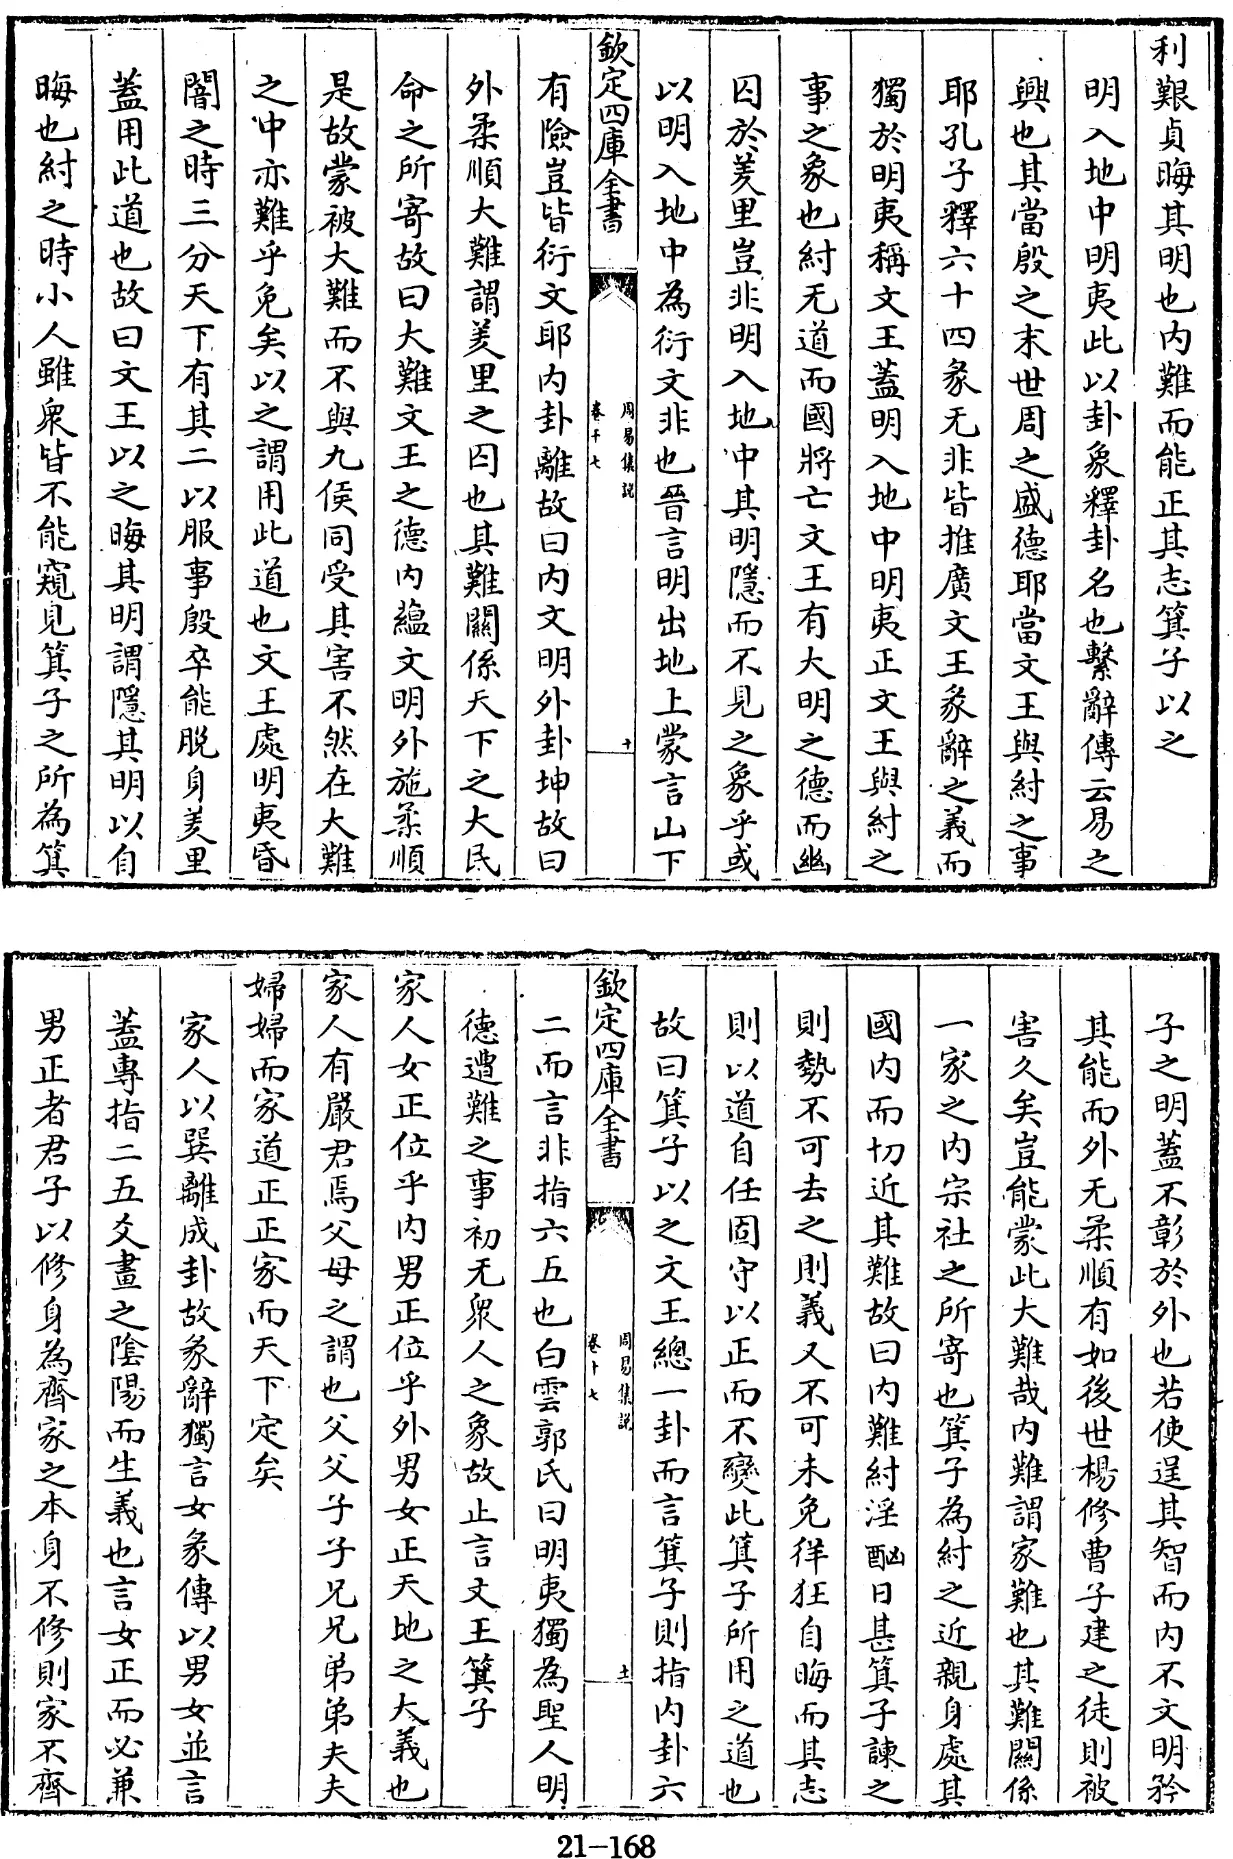 利艱貞晦其明也内難而能正其志箕子以之
明入地中明夷此以卦象釋卦名也繫辭傳云易之
興也其當殷之末世周之盛德耶當文王與紂之事
耶孔子釋六十四彖无非皆推廣文王彖辭之義而
獨於明夷稱文王蓋明入地中明夷正文王與紂之
事之象也紂无道而國將亡文王有大明之德而幽
囚於羑里豈非明入地中其明隱而不見之象乎或
以明入地中為衍文非也晉言明出地上蒙言山下
欽定四庫全書
周易集説
卷十七
十
有險豈皆衍文耶内卦離故曰内文明外卦坤故曰
外柔順大難謂羑里之囚也其難關係天下之大民
命之所寄故曰大難文王之德内蘊文明外施柔順
是故蒙被大難而不與九侯同受其害不然在大難
之中亦難乎免矣以之謂用此道也文王處明夷昏
闇之時三分天下有其二以服事殷卒能脱身羑里
蓋用此道也故曰文王以之晦其明謂隱其明以自
晦也紂之時小人雖衆皆不能窺見箕子之所為箕
子之明蓋不彰於外也若使逞其智而内不文明矜
其能而外无柔順有如後世楊修曹子建之徒則被
害久矣豈能蒙此大難哉内難謂家難也其難關係
一家之内宗社之所寄也箕子為紂之近親身處其
國内而切近其難故曰内難紂淫酗日甚箕子諫之
則勢不可去之則義又不可未免徉狂自晦而其志
則以道自任固守以正而不變此箕子所用之道也
故曰箕子以之文王總一卦而言箕子則指内卦六
欽定四庫全書
周易集説
卷十七
十一
二而言非指六五也白雲郭氏曰明夷獨為聖人明
德遭難之事初无衆人之象故止言文王箕子
家人女正位乎内男正位乎外男女正天地之大義也
家人有嚴君焉父母之謂也父父子子兄兄弟弟夫夫
婦婦而家道正正家而天下定矣
家人以巽離成卦故彖辭獨言女彖傳以男女並言
蓋專指二五爻畫之陰陽而生義也言女正而必兼
男正者君子以修身為齊家之本身不修則家不齊
21-168